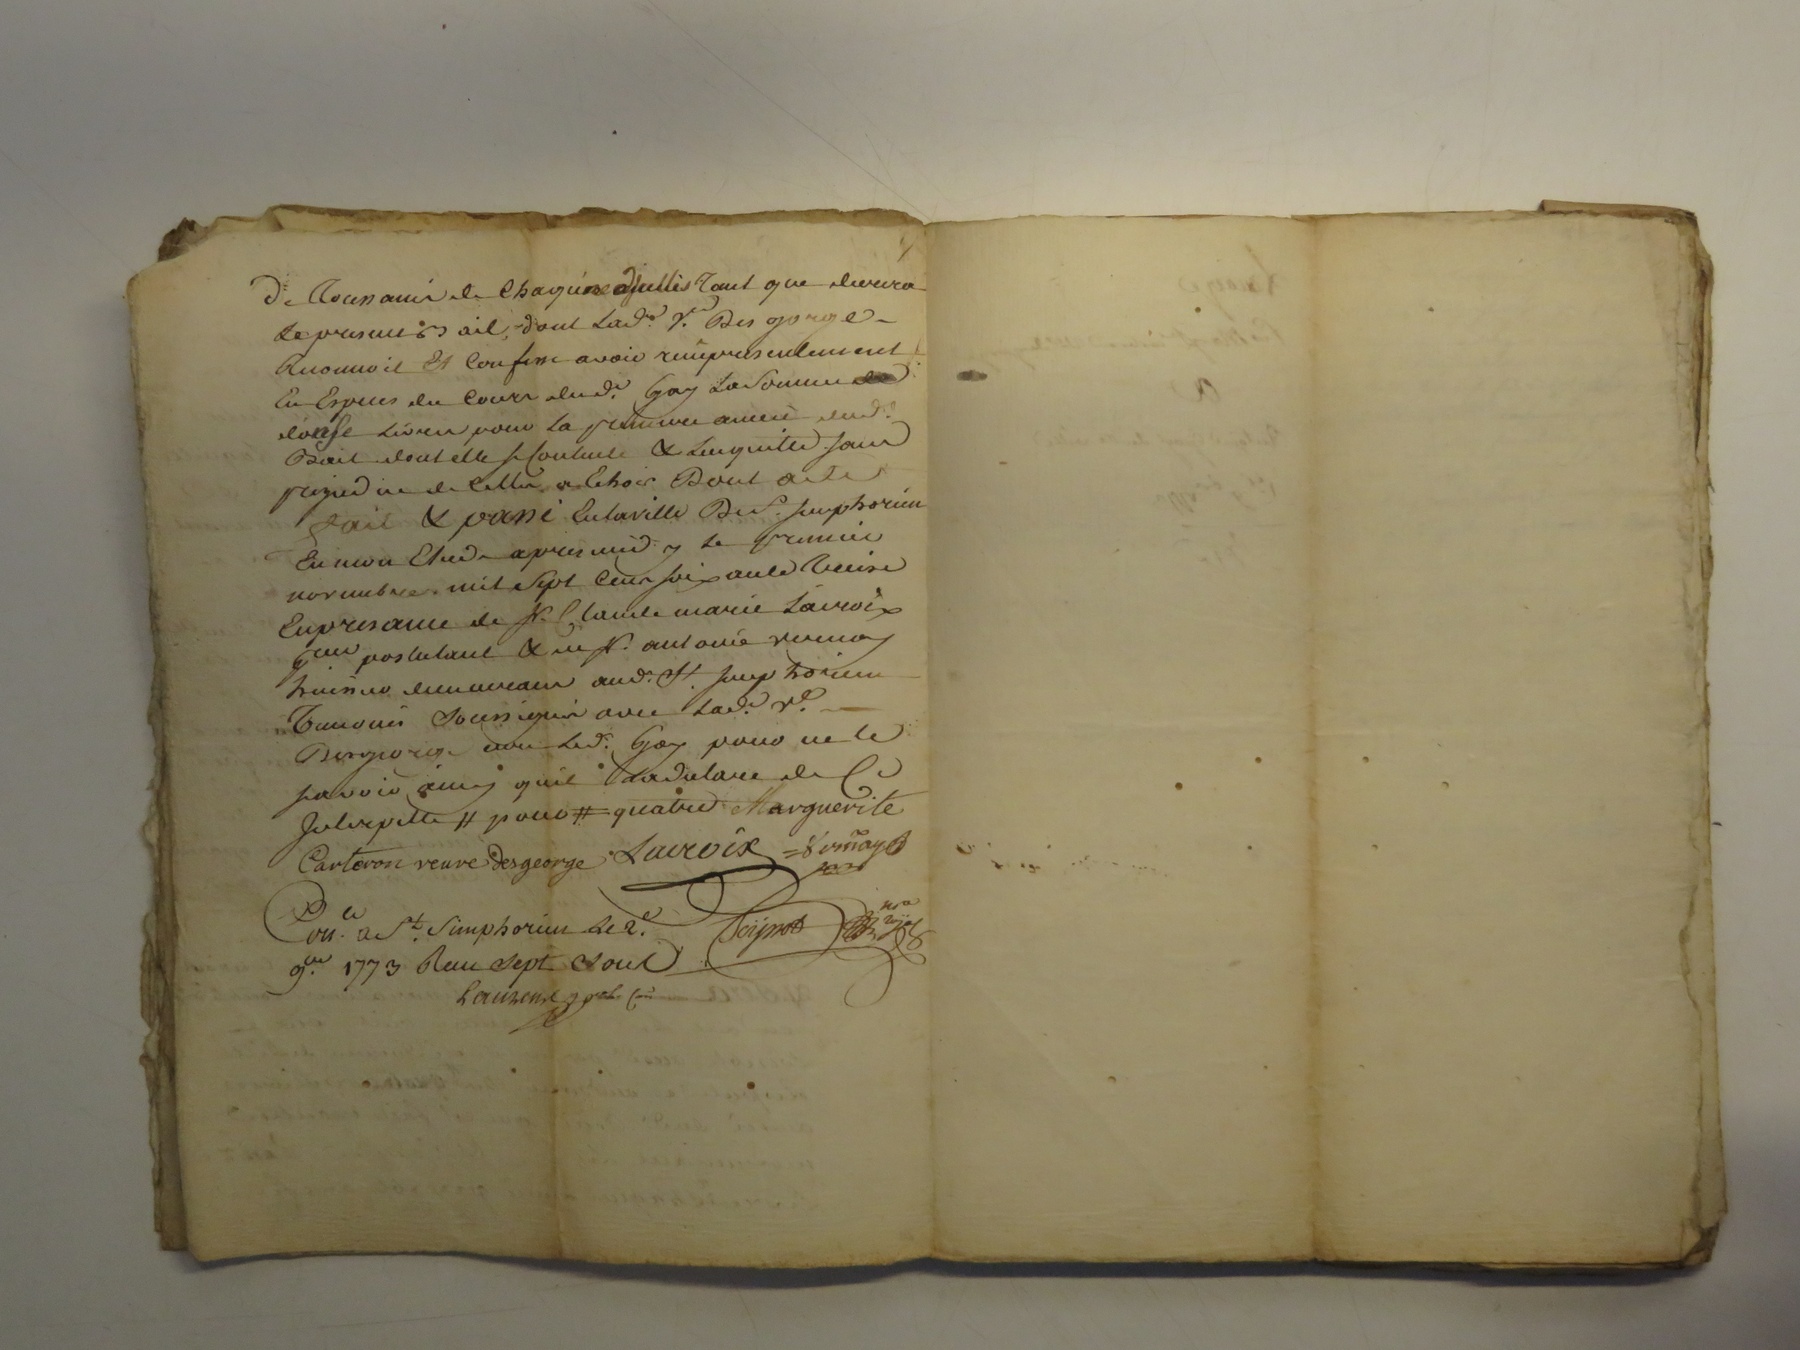 de Toussaint de Chaque année tant que durera
le present Bail, dont lad.e v.e Desgeorge
Reconnoit Et Confesse avoir reçu presentement
En Especes du Cours dud.t Gay La Somme de
douse Livres pour la premiere année dud.t
Bail dont elle se Contente & Len quitte sans
prejudice de Celles a Echoir Dont acte
fait & passé En la ville De St. simphorien
En mon Etude apres midy le premier
novembre mil sept Cent soixante treise
En presance de Sr. Claude marie Lacroix
postulant & de Sr. antoine vermay
huissier demeurant aud.t St. simphorien
Temoins soussignés avec lad.e v.e
Desgeorge non Led.t Gay pour ne le
savoir ainsy quil La declaré de Ce
Interpellé # pour # quatre Marguerite
Carteron veuve desgeorge Lacroix vermay
Con.le a St. Simphorien Le 2.e
9bre 1773 Reçu sept sous